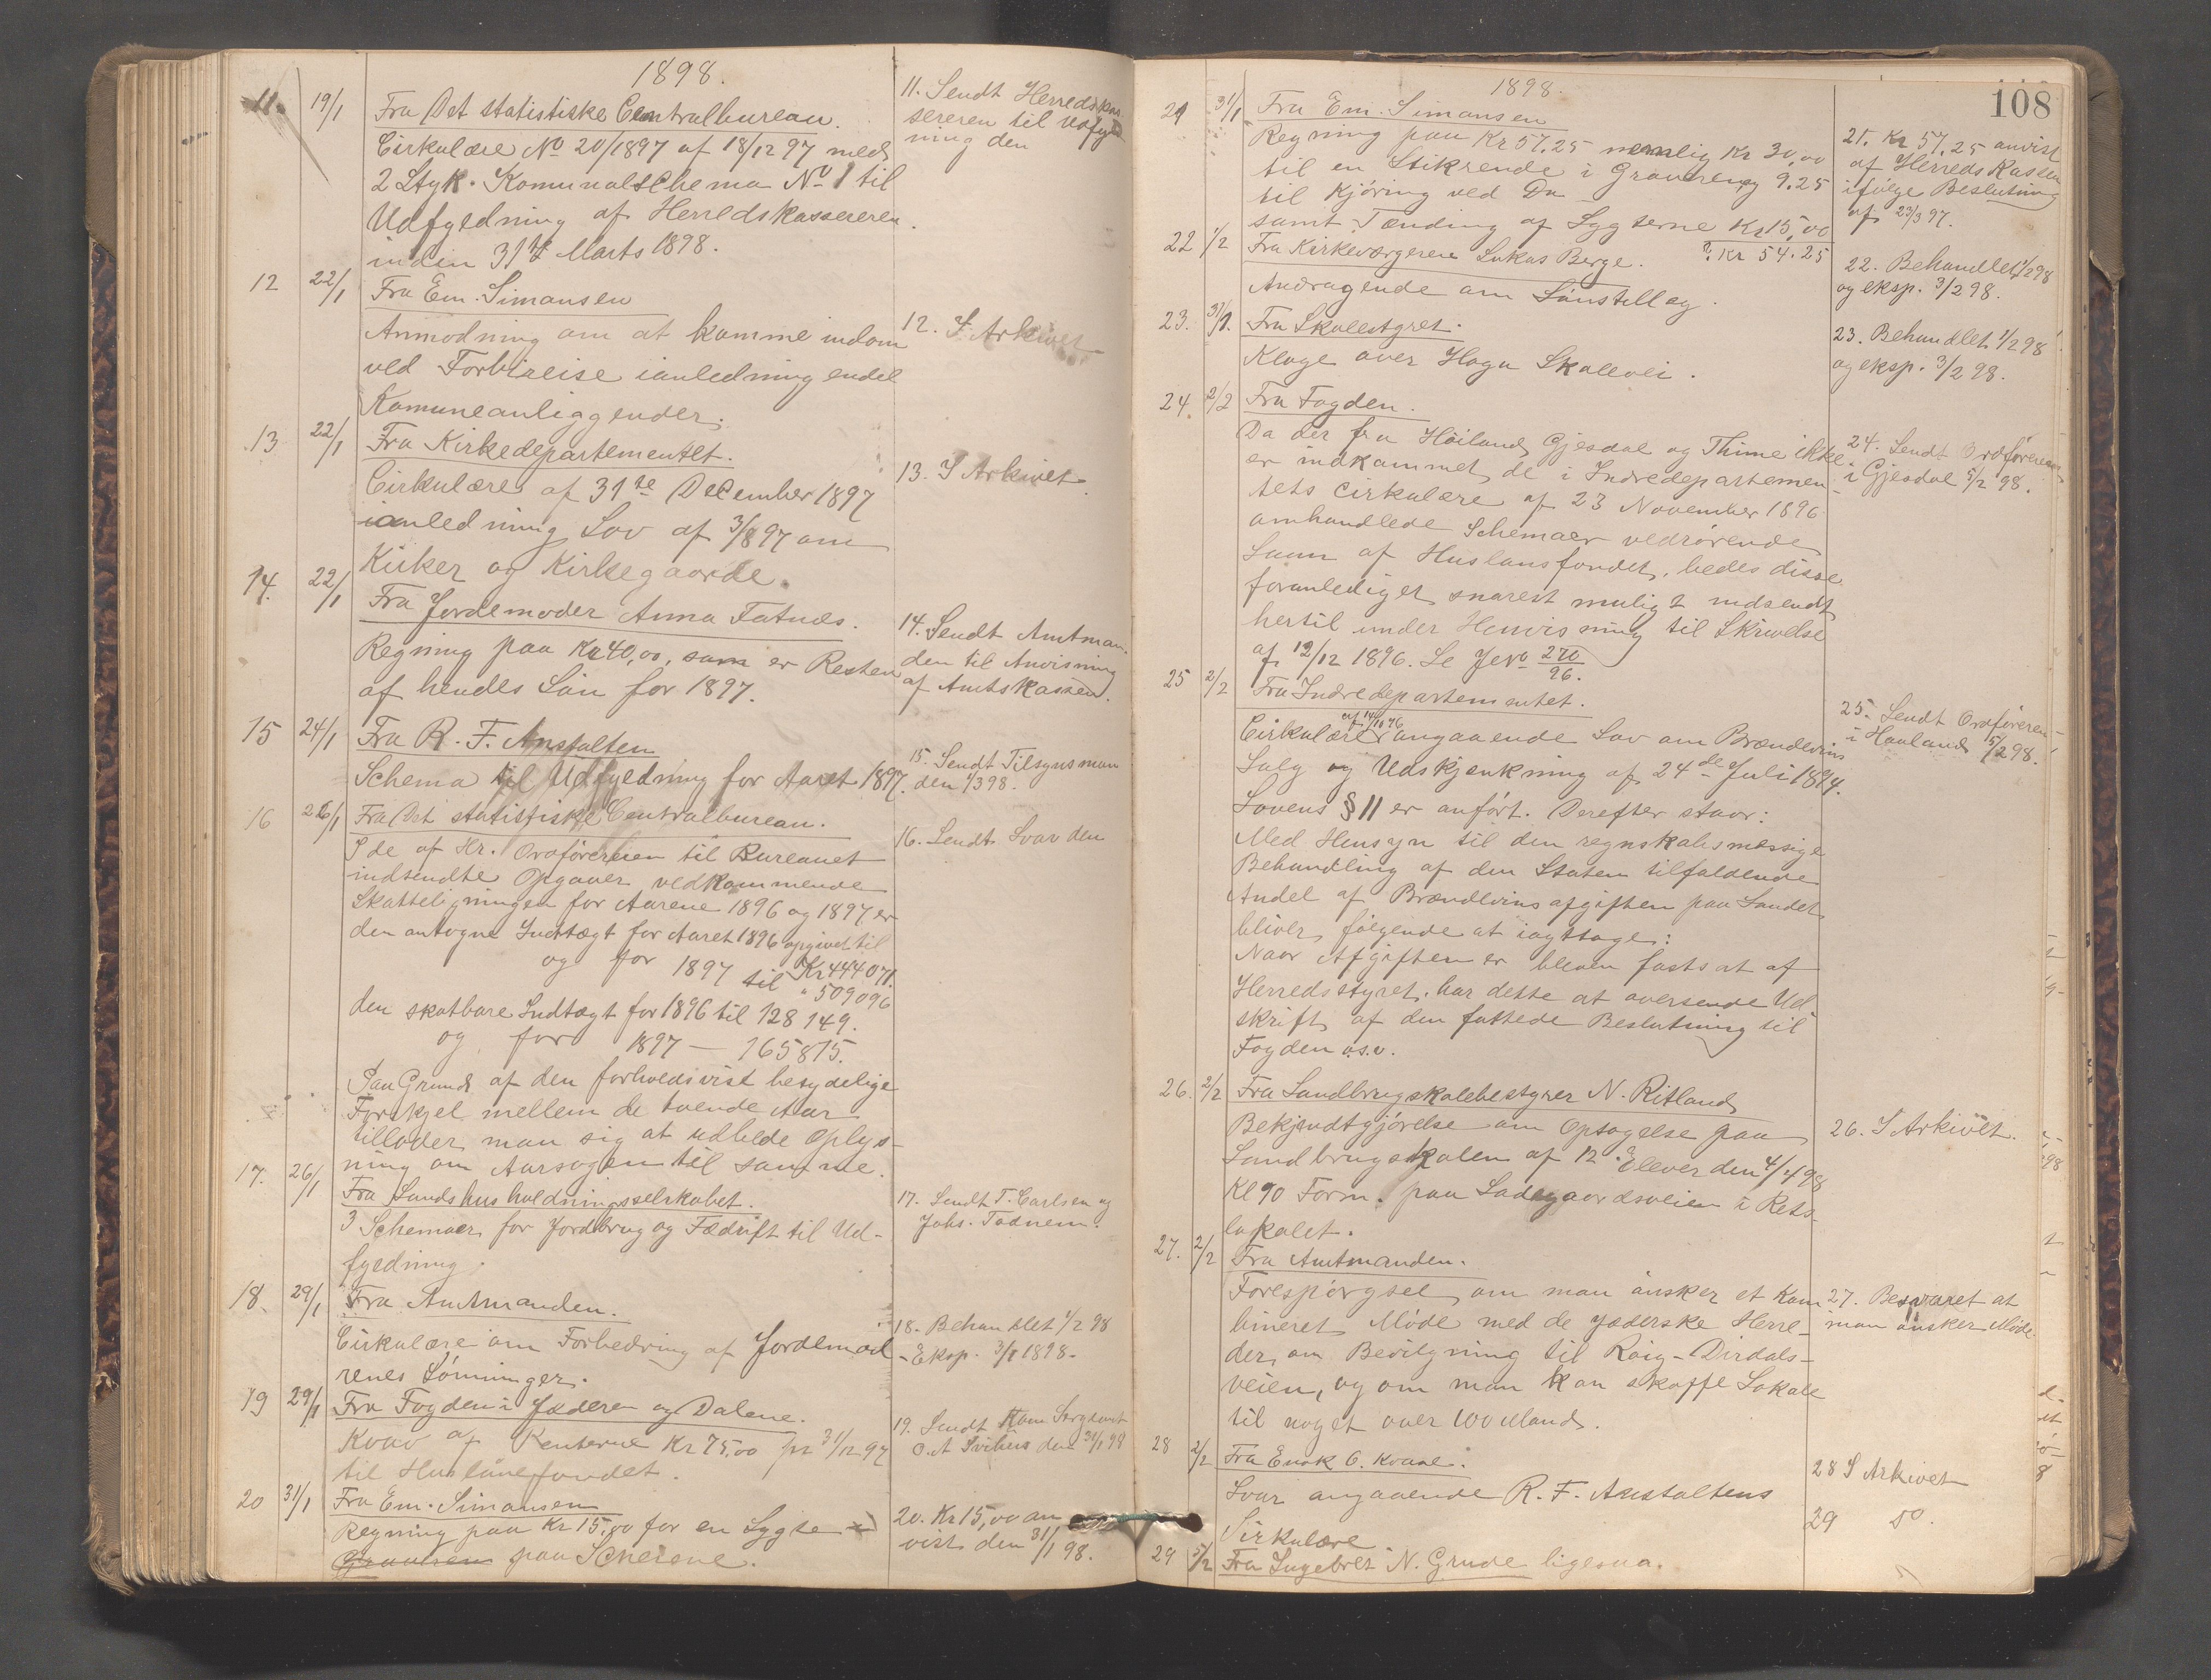 1898.
11. 19/1 Fra Det statistiske Centralbureau.
Cirkulære No 20/1897 af 18/12 97 med
2 Styk. Komunalschema No 1 til
Udfyldning af Herredskassereren
inden 31te Marts 1898.
11. Sendt Herredskas
sereren til Udfyld
ning den
12 22/1 Fra Em. Simonsen
Anmodning om at komme indom
ved Forbireise ianledning endel
Komuneanliggender.
12. I Arkivet
13 22/1 Fra Kirkedepartementet.
Cirkulære af 31te December 1897
ianledning Lov af 3/8 97 om
Kirker og Kirkegaarde.
13. I Arkivet.
14. 22/1 Fra Jordemoder Anna Tatnes.
Regning paa Kr 40,00, som er Resten
af hendes Løn for 1897.
14. Sendt Amtman
den til Anvisning
af Amtskassen.
15 24/1 Fra R. F. Anstalten
Schema til Udfyldning for Aaret 1897.
15. Sendt Tilsynsman
den 1/3 98.
16 26/1 Fra Det statistiske Centralbureau.
I de af Hr. Ordføreren til Bureauet
indsendte Opgaver vedkommende
Skatteligningen for Aarene 1896 og 1897 er
den antagne Indtægt for Aaret 1896 opgivet til
Kr 444 071.
og for 1897 til " 509 096
den skatbare Indtægt for 1896 til 128 149.
og for 1897 — 165 815.
Paa Grund af den forholdsvist betydelige
Forskjel mellem de tvende Aar
tillader man sig at udbede Oplys-
ning om Aarsagen til samme.
16. Sendt Svar den
17. 26/1 Fra Landshusholdningsselskabet.
3 Schemaer for Jordbrug og Fædrift til Ud-
fyldning.
17. Sendt T. Carlsen og
Johs. Todnem.
18. 29/1 Fra Amtmanden.
Cirkulære om Forbedring af Jordemød
renes Lønninger.
18. Behandlet 1/2 98
- Eksp. 3/2 1898.
19 29/1 Fra Fogden i Jæderen og Dalene.
Krav af Renterne Kr 75,00 pr 31/12 97
til Huslånefondet.
19. Sendt
O. A. Svihus den 31/1 98
20 31/1 Fra Em. Simonsen
Regning paa Kr 15,00 for en Lygte
Graveren paa Scheiene.
20. Kr 15,00 an
vist den 31/1 98.
108
1898.
21 31/1 Fra Em. Simonsen
Regning paa Kr 57.25 nemlig Kr 30,00
til en Stikrende i Graveren, 9.25
til Kjøring ved Do
samt Tænding af Lygterne Kr 15,00
? Kr 54.25
21. Kr 57.25 anvist
af Herreds Kassen
ifølge Beslutning
af 23/3 97.
22 1/2 Fra Kirkeværgeren Lukas Berge.
Andragende om Lønstillæg.
22. Behandlet 1/2 98
og eksp. 3/2 98.
23. 31/1. Fra Skolestyret.
Klage over Hogn Skolevei.
23. Behandlet 1/2 98
og eksp. 3/2 98.
24. 2/2 Fra Fogden.
Da der fra Høiland, Gjesdal og Thime ikke
er indkommet de i Indredepartemen-
tets Cirkulære af 23 November 1896
omhandlede Schemaer vedrørende
Laan af Huslånsfondet, bedes disse
foranlediget snarest muligt indsendt
hertil under Henvisning til Skrivelse
af 12/12 1896. Se Jevo 270/96.
24. Sendt Ordføreren
i Gjesdal 5/2 98.
25 2/2 Fra Indredepartementet.
Cirkulære af 14/10 96 angaaende Lov om Brændevins
Salg og Udskjænkning af 24de Juli 1894.
Lovens § 11 er anført. Derefter staar:
Med Hensyn til den regnskabsmæssige
Behandling af den Staten tilfaldende
Andel af Brændevinsafgiften paa Landet
bliver følgende at iagttage:
Naar Afgiften er bleven fastsat af
Herredsstyret, har dette at oversende Ud-
skrift af den fattede Beslutning til
Fogden o.s.v.
25. Sendt Ordføreren
i Haaland 15/2 98.
26. 2/2 Fra Landbrugskolebestyrer N. Ritland
Bekjendtgjørelse om Optagelse paa
Landbrugskolen af 12 Elever den 4/4 98
Kl 10 Form. paa Ladegaardsveien i Rets-
lokalet.
26. I Arkivet.
27. 2/2 Fra Amtmanden.
Forespørgsel om man ønsker et Kom
bineret Møde med de jæderske Herre-
der, om Bevilgning til Røig-Dirdals-
veien, og om man kan skaffe Lokale
til noget over 100 Mand.
27. Besvaret at
man ønsker Møde.
28 2/2 Fra Enok C. Kvaae.
Svar angaaende R. F. Anstaltens
Sirkulære.
28 I Arkivet
29 5/2 Fra Ingebret N. Grude ligesaa.
29 Do.